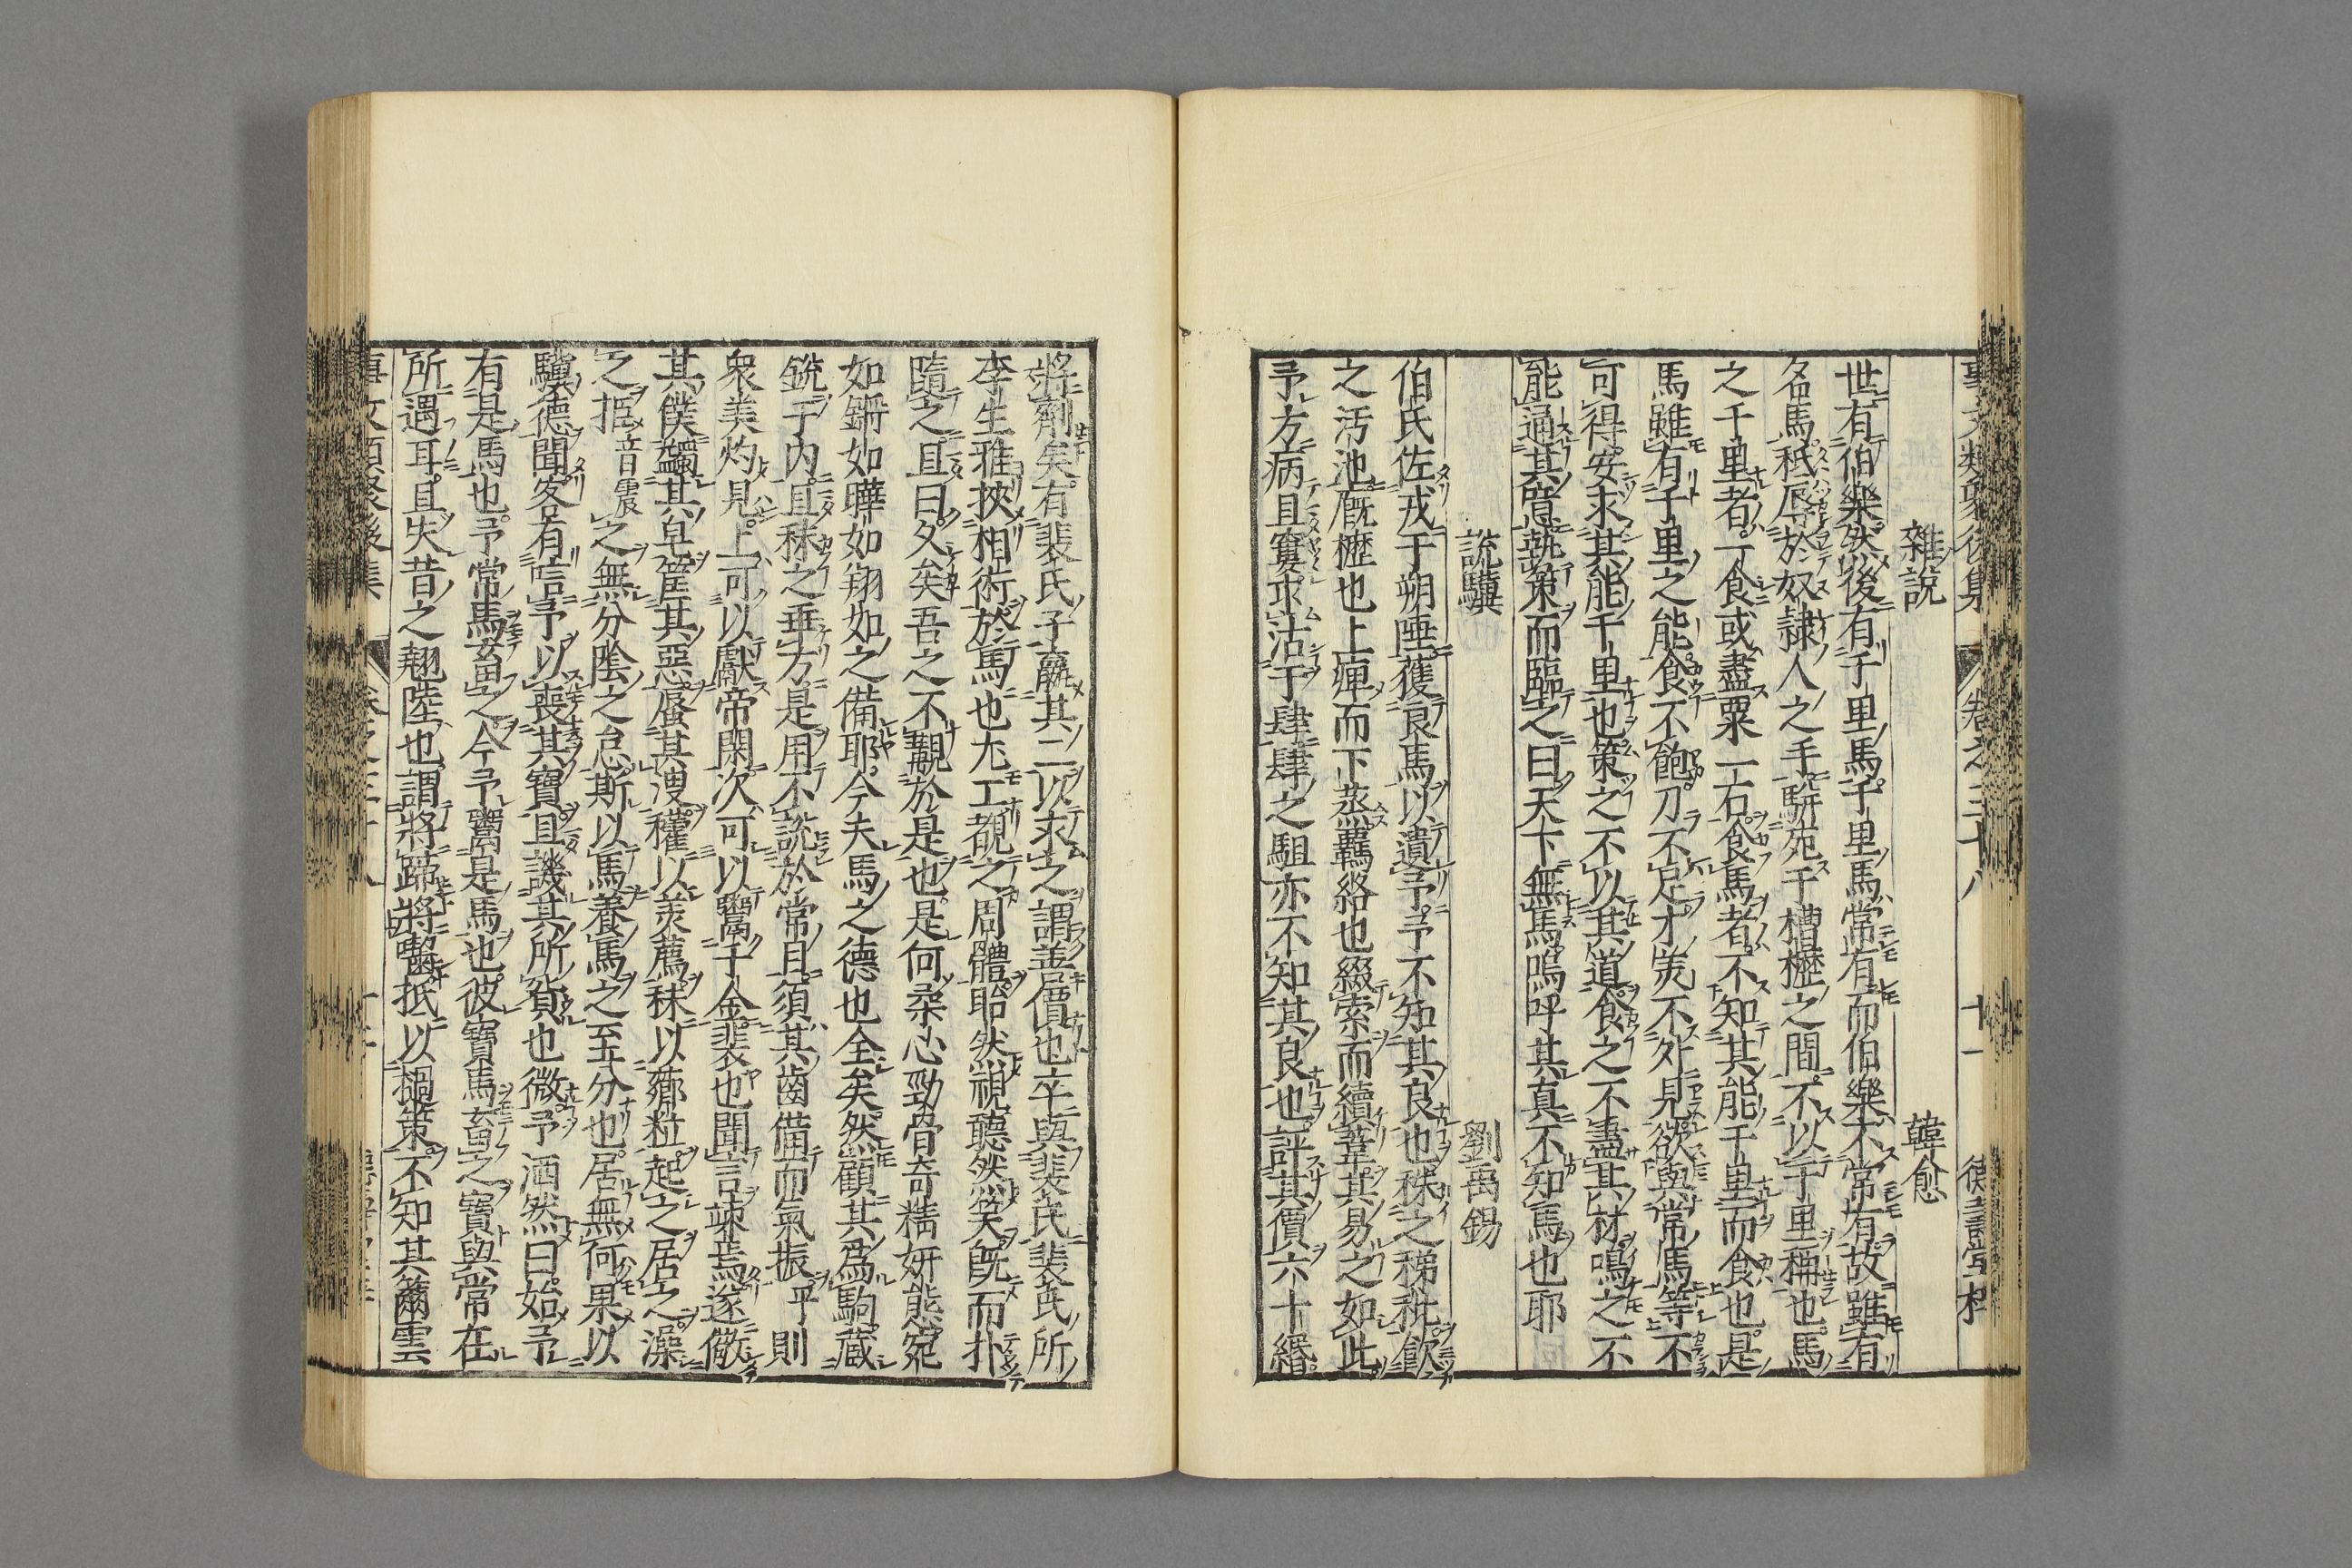 雜說　韓愈
世有伯樂然後有千里馬千里馬常有而伯樂不常有故雖有
名馬秪辱於奴隸人之手駢死于槽櫪之間不以千里稱也馬
之千里者一食或盡粟一石食馬者不知其能千里而食也是
馬雖有千里之能食不飽力不足才羙不外見欲與常馬等不
可得安求其能千里也策之不以其道食之不盡其材鳴之不
能通其意執策而臨之曰天下無馬嗚呼其真不知馬也耶
說驥　劉禹錫
伯氏佐戎于朔陲獲良馬以遺予予不知其良也秣之稊秕飲
之汚池廐櫪也上痺而下蒸羈絡也綴索而續葦其易之如此
予方病且窶求沽于肆肆之駔亦不知其良也評其價六十緡
將劑矣有裴氏子贏其二以求之謂善價也卒與裴氏裴氏所
李生雅挾相術於馬也尤工覩之周體眙然視聽然笑旣而抃
隨之且曰久矣吾之不覯於是也是何柔心勁骨奇精妍態宛
如鏘如曄如翔如之備耶今夫馬之德也全矣然顧其爲駒藏
銳于內且秣之乖方是用不說於常目須其齒備而氣振乎則
衆美灼見上可以獻帝閑次可以鬻千金裴也聞言竦焉遂儆
其僕蠲其皂筐其惡蜃其溲穫以羙薦秣以薌粒起之居之澡
之挋音震之無分陰之怠斯以馬養馬之至分也居無何果以
驥德聞客有唁予以喪其寶且譏其所貨也微予洒然曰始予
有是馬也予常馬畜之今予鬻是馬也彼寶馬畜之寶與常在
所遇耳且失昔之翹陸也謂將蹄將齧抵以檛策不知其籋雲